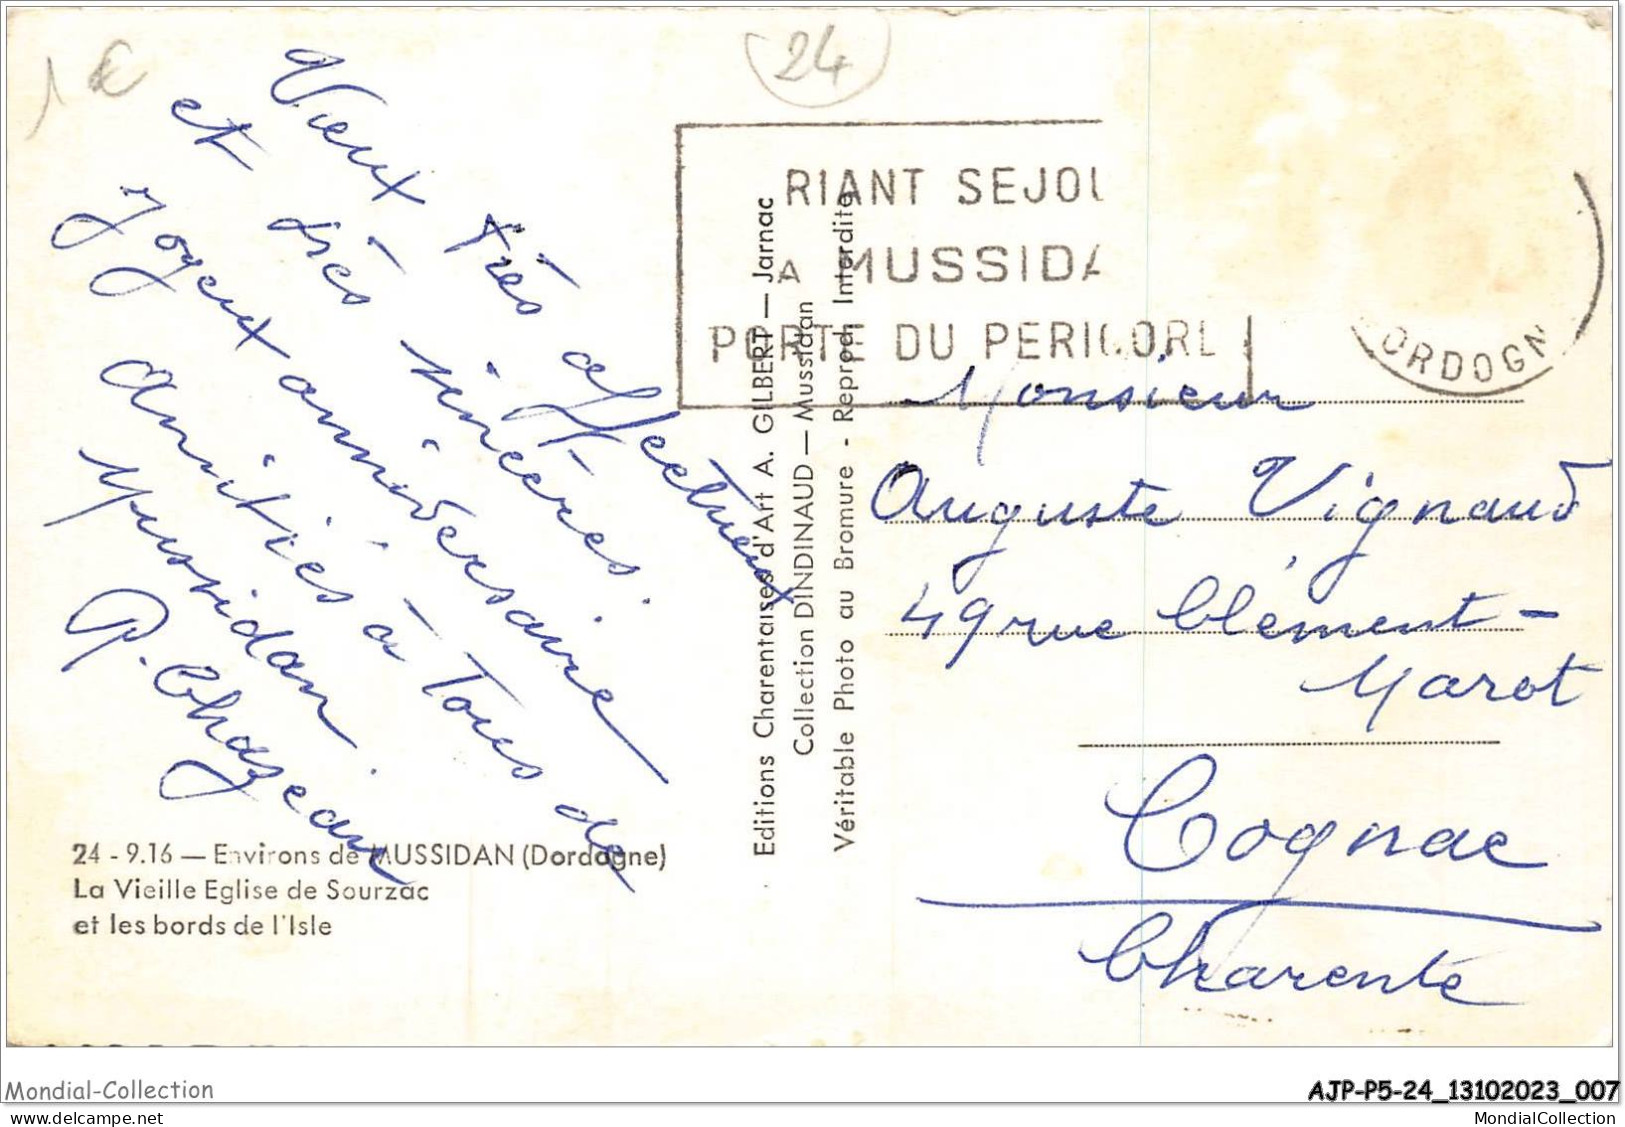 1 €
24
Vœux très affectueux
et très sincères.
Joyeux anniversaire
Amitiés à Tous de
Mussidan
P. Chazeau
24 - 9.16 — Environs de MUSSIDAN (Dordogne)
La Vieille Eglise de Sourzac
et les bords de l'Isle
Editions Charentaises d'Art A. GILBERT — Jarnac
Collection DINDINAUD — Mussidan
Véritable Photo au Bromure - Reprod. Interdite
RIANT SEJOU
A MUSSIDA
PORTE DU PERIGORD
ORDOGN
Monsieur
Auguste Vignaud
49 rue Clément-
Marot
Cognac
Charente
Mondial-Collection
www.delcampe.net
AJP-P5-24_13102023_007
MondialCollection